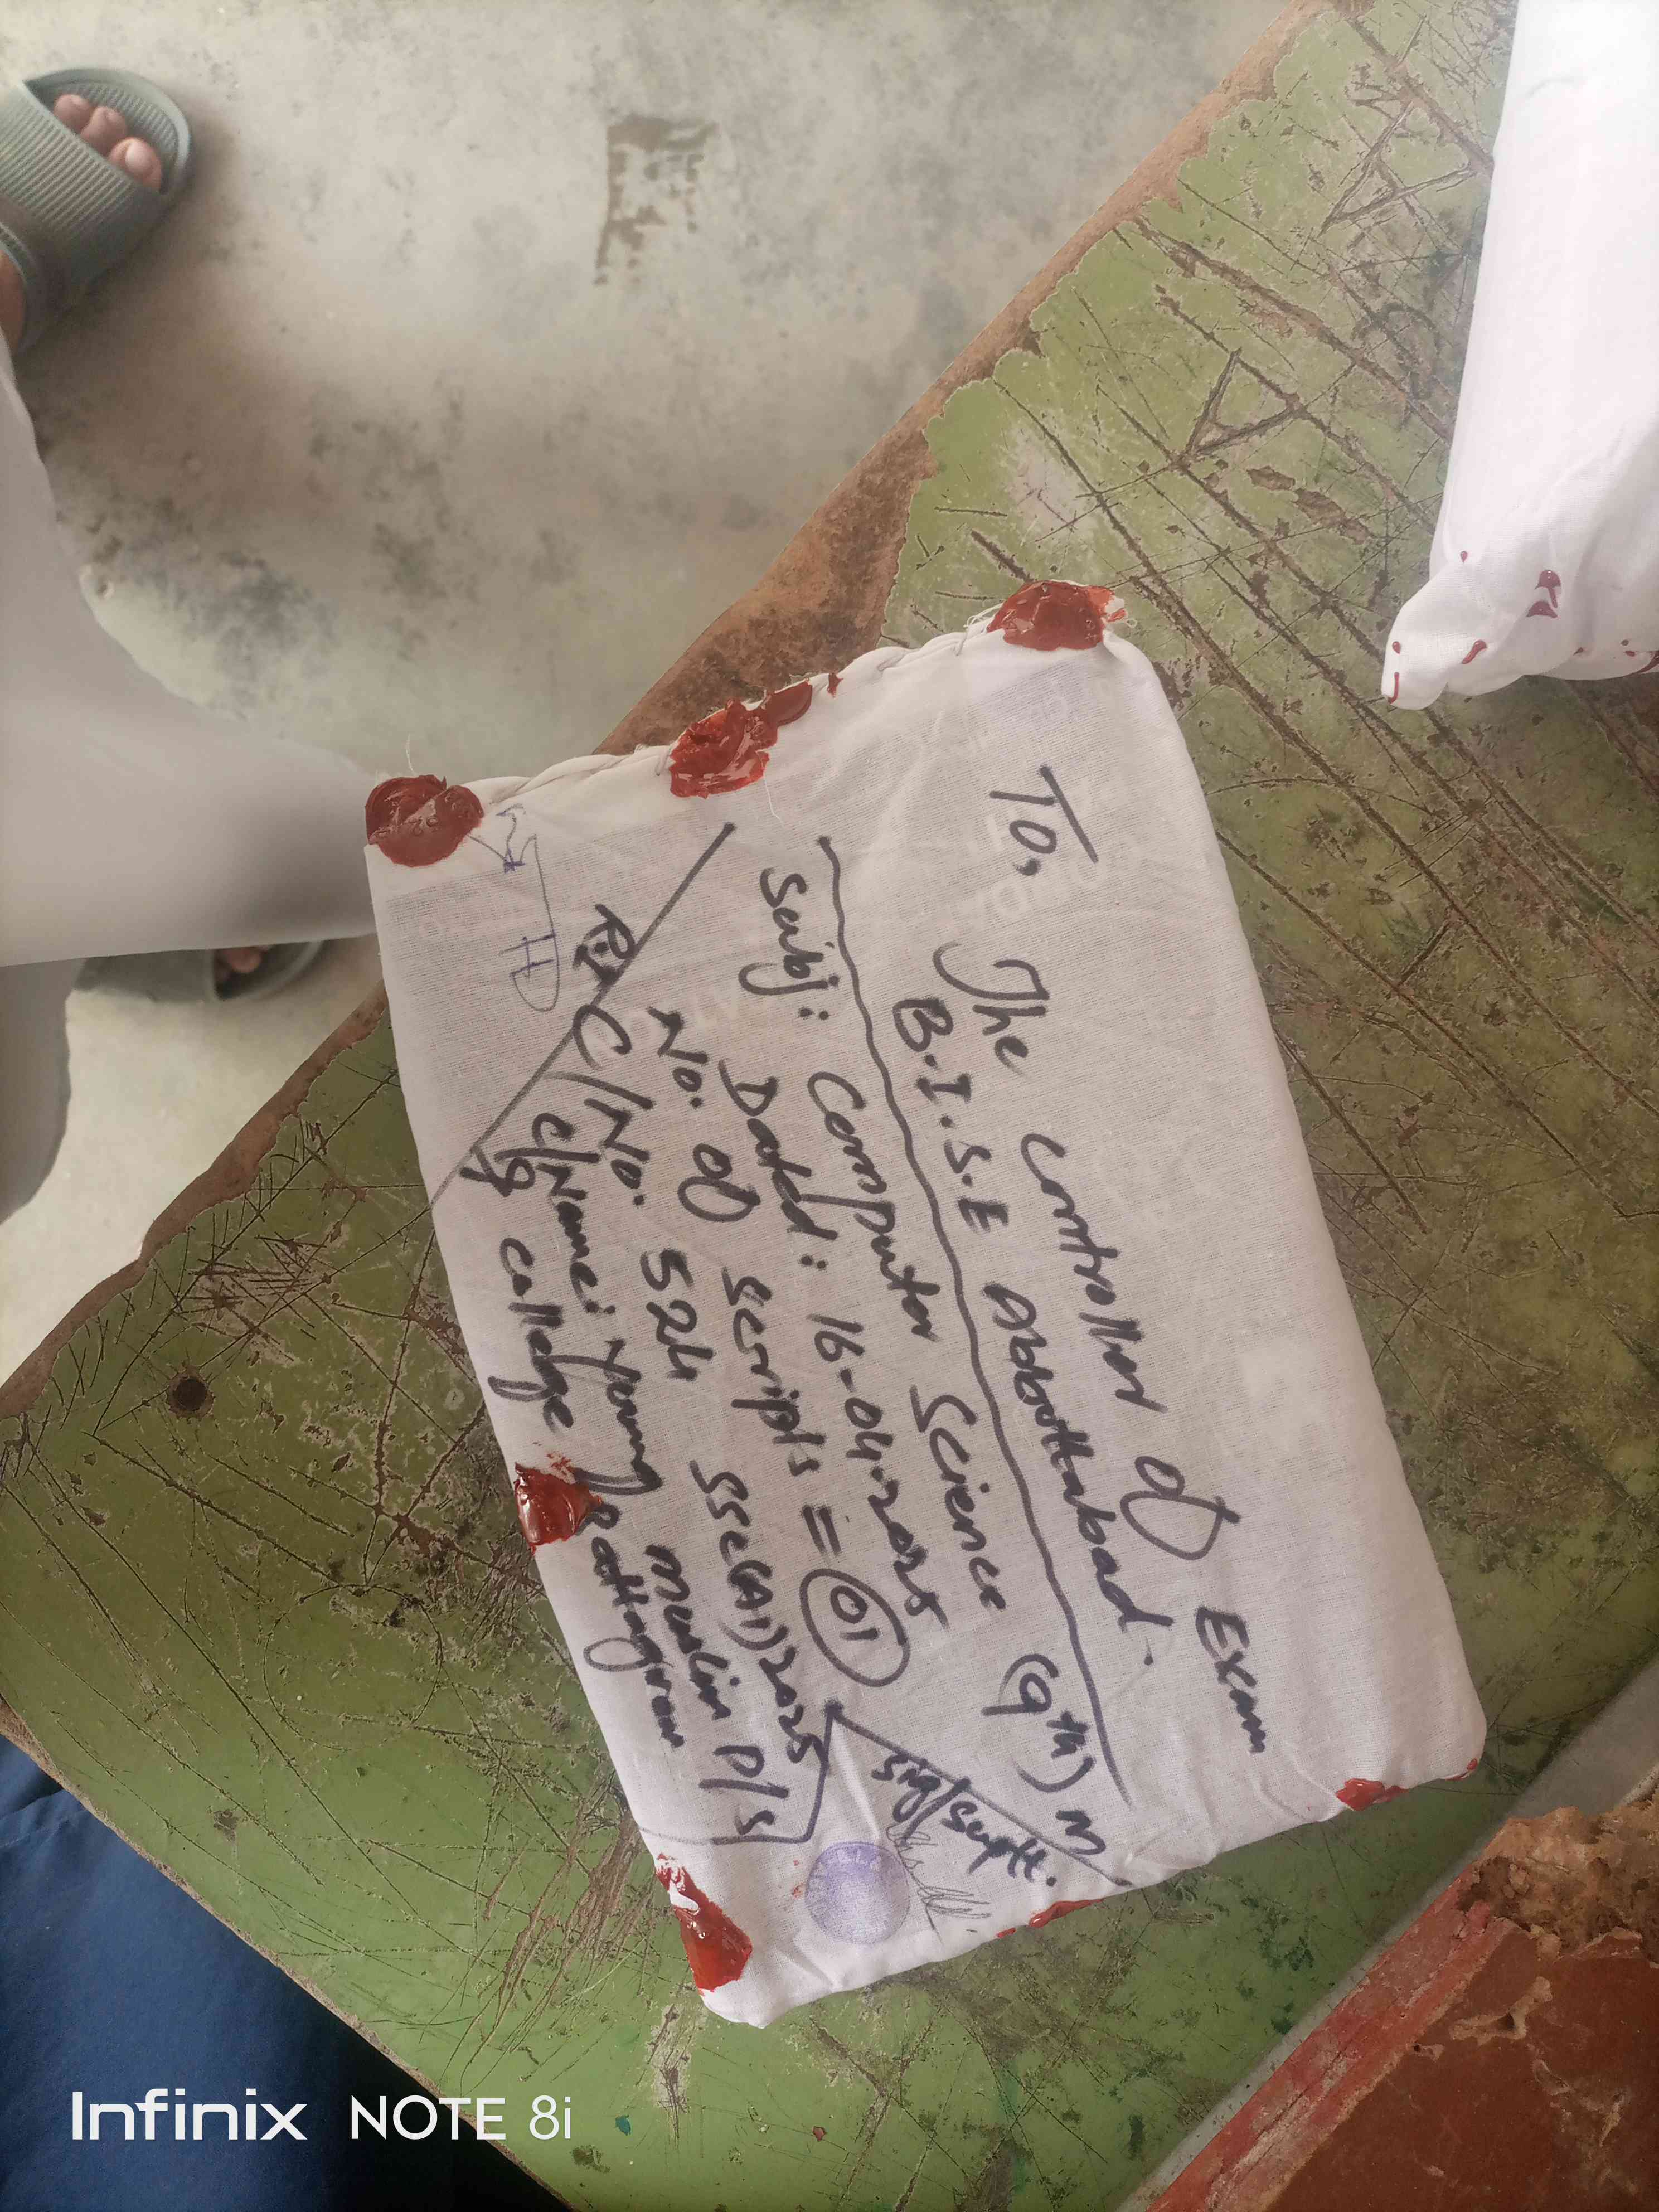 To,
The Controller Of Exam
B.I.S.E Abbottabad.
Subj: Computer Science (9th) M
Dated: 16-04-2025
No. Of Scripts = 01
C/No. 524 SSC(A1)2025
C/Name: Young Muslim P/S
& College Battagram
Sig/Suptt.
R.I
Infinix NOTE 8i